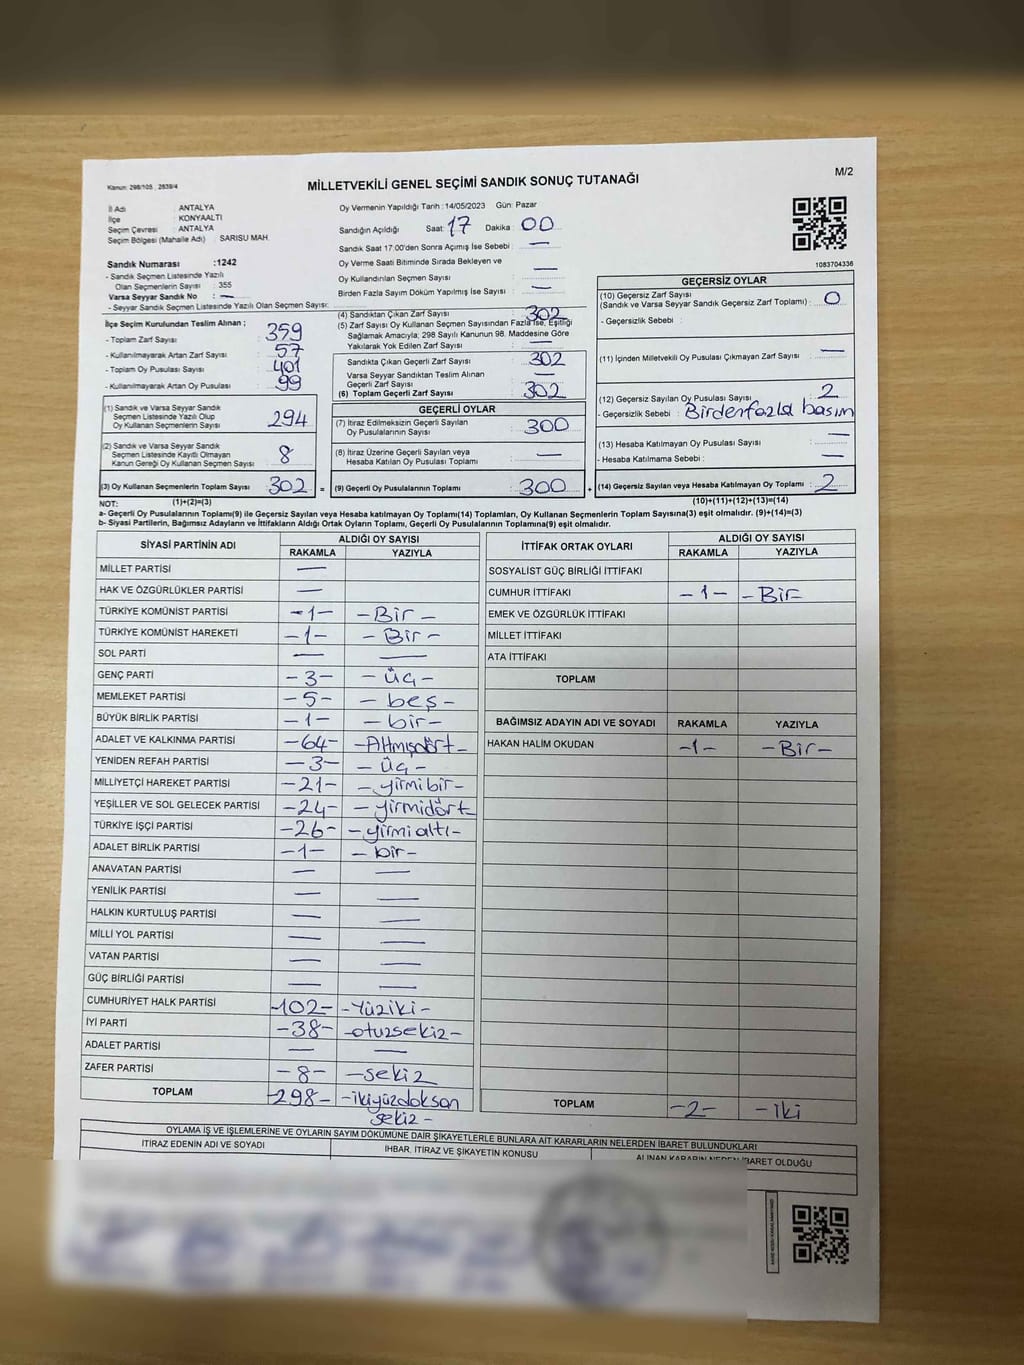 M/2
Kanun: 298/105 , 2839/4
MİLLETVEKİLİ GENEL SEÇİMİ SANDIK SONUÇ TUTANAĞI
İl Adı : ANTALYA
İlçe : KONYAALTI
Seçim Çevresi : ANTALYA
Seçim Bölgesi (Mahalle Adı) : SARISU MAH.
Sandık Numarası :1242
- Sandık Seçmen Listesinde Yazılı
Olan Seçmenlerin Sayısı : 355
Varsa Seyyar Sandık No : —
- Seyyar Sandık Seçmen Listesinde Yazılı Olan Seçmen Sayısı:
Oy Vermenin Yapıldığı Tarih : 14/05/2023 Gün: Pazar
Sandığın Açıldığı Saat: 17 Dakika : 00
Sandık Saat 17.00'den Sonra Açımış İse Sebebi : —
Oy Verme Saati Bitiminde Sırada Bekleyen ve
Oy Kullandırılan Seçmen Sayısı : —
Birden Fazla Sayım Döküm Yapılmış İse Sayısı : —
1083704336
İlçe Seçim Kurulundan Teslim Alınan ;
- Toplam Zarf Sayısı : 359
- Kullanılmayarak Artan Zarf Sayısı : 57
- Toplam Oy Pusulası Sayısı : 401
- Kullanılmayarak Artan Oy Pusulası : 99
(1) Sandık ve Varsa Seyyar Sandık
Seçmen Listesinde Yazılı Olup
Oy Kullanan Seçmenlerin Sayısı : 294
(2) Sandık ve Varsa Seyyar Sandık
Seçmen Listesinde Kayıtlı Olmayan
Kanun Gereği Oy Kullanan Seçmen Sayısı : 8
(3) Oy Kullanan Seçmenlerin Toplam Sayısı : 302 =
(1)+(2)=(3)
(4) Sandıktan Çıkan Zarf Sayısı : 302
(5) Zarf Sayısı Oy Kullanan Seçmen Sayısından Fazla İse, Eşitliği
Sağlamak Amacıyla; 298 Sayılı Kanunun 98. Maddesine Göre
Yakılarak Yok Edilen Zarf Sayısı : —
Sandıkta Çıkan Geçerli Zarf Sayısı : 302
Varsa Seyyar Sandıktan Teslim Alınan
Geçerli Zarf Sayısı : —
(6) Toplam Geçerli Zarf Sayısı : 302
GEÇERLİ OYLAR
(7) İtiraz Edilmeksizin Geçerli Sayılan
Oy Pusulalarının Sayısı : 300
(8) İtiraz Üzerine Geçerli Sayılan veya
Hesaba Katılan Oy Pusulası Toplamı : —
(9) Geçerli Oy Pusulalarının Toplamı : 300 +
GEÇERSİZ OYLAR
(10) Geçersiz Zarf Sayısı
(Sandık ve Varsa Seyyar Sandık Geçersiz Zarf Toplamı) : 0
- Geçersizlik Sebebi :
(11) İçinden Milletvekili Oy Pusulası Çıkmayan Zarf Sayısı : —
(12) Geçersiz Sayılan Oy Pusulası Sayısı : 2
- Geçersizlik Sebebi : Birdenfazla basım
(13) Hesaba Katılmayan Oy Pusulası Sayısı : —
- Hesaba Katılmama Sebebi : —
(14) Geçersiz Sayılan veya Hesaba Katılmayan Oy Toplamı : 2
(10)+(11)+(12)+(13)=(14)
NOT:
a- Geçerli Oy Pusulalarının Toplamı(9) ile Geçersiz Sayılan veya Hesaba katılmayan Oy Toplamı(14) Toplamları, Oy Kullanan Seçmenlerin Toplam Sayısına(3) eşit olmalıdır. (9)+(14)=(3)
b- Siyasi Partilerin, Bağımsız Adayların ve İttifakların Aldığı Ortak Oyların Toplamı, Geçerli Oy Pusulalarının Toplamına(9) eşit olmalıdır.
SİYASİ PARTİNİN ADI ALDIĞI OY SAYISI
RAKAMLA YAZIYLA
MİLLET PARTİSİ —
HAK VE ÖZGÜRLÜKLER PARTİSİ —
TÜRKİYE KOMÜNİST PARTİSİ -1- -Bir-
TÜRKİYE KOMÜNİST HAREKETİ -1- -Bir-
SOL PARTİ — —
GENÇ PARTİ -3- -üç-
MEMLEKET PARTİSİ -5- -beş-
BÜYÜK BİRLİK PARTİSİ -1- -bir-
ADALET VE KALKINMA PARTİSİ -64- -Altmışdört-
YENİDEN REFAH PARTİSİ -3- -üç-
MİLLİYETÇİ HAREKET PARTİSİ -21- -yirmibir-
YEŞİLLER VE SOL GELECEK PARTİSİ -24- -yirmidört
TÜRKİYE İŞÇİ PARTİSİ -26- -yirmialtı-
ADALET BİRLİK PARTİSİ -1- -bir-
ANAVATAN PARTİSİ — —
YENİLİK PARTİSİ — —
HALKIN KURTULUŞ PARTİSİ — —
MİLLİ YOL PARTİSİ — —
VATAN PARTİSİ — —
GÜÇ BİRLİĞİ PARTİSİ — —
CUMHURİYET HALK PARTİSİ -102- -Yüziki-
İYİ PARTİ -38- -otuzsekiz-
ADALET PARTİSİ — —
ZAFER PARTİSİ -8- -sekiz
TOPLAM -298- -ikiyüzdoksan
sekiz-
İTTİFAK ORTAK OYLARI ALDIĞI OY SAYISI
RAKAMLA YAZIYLA
SOSYALİST GÜÇ BİRLİĞİ İTTİFAKI
CUMHUR İTTİFAKI -1- -Bir-
EMEK VE ÖZGÜRLÜK İTTİFAKI
MİLLET İTTİFAKI
ATA İTTİFAKI
TOPLAM
BAĞIMSIZ ADAYIN ADI VE SOYADI RAKAMLA YAZIYLA
HAKAN HALİM OKUDAN -1- -Bir-
TOPLAM -2- -iki
OYLAMA İŞ VE İŞLEMLERİNE VE OYLARIN SAYIM DÖKÜMÜNE DAİR ŞİKAYETLERLE BUNLARA AİT KARARLARIN NELERDEN İBARET BULUNDUKLARI
İTİRAZ EDENİN ADI VE SOYADI İHBAR, İTİRAZ VE ŞİKAYETİN KONUSU ALINAN KARARIN NEDEN İBARET OLDUĞU